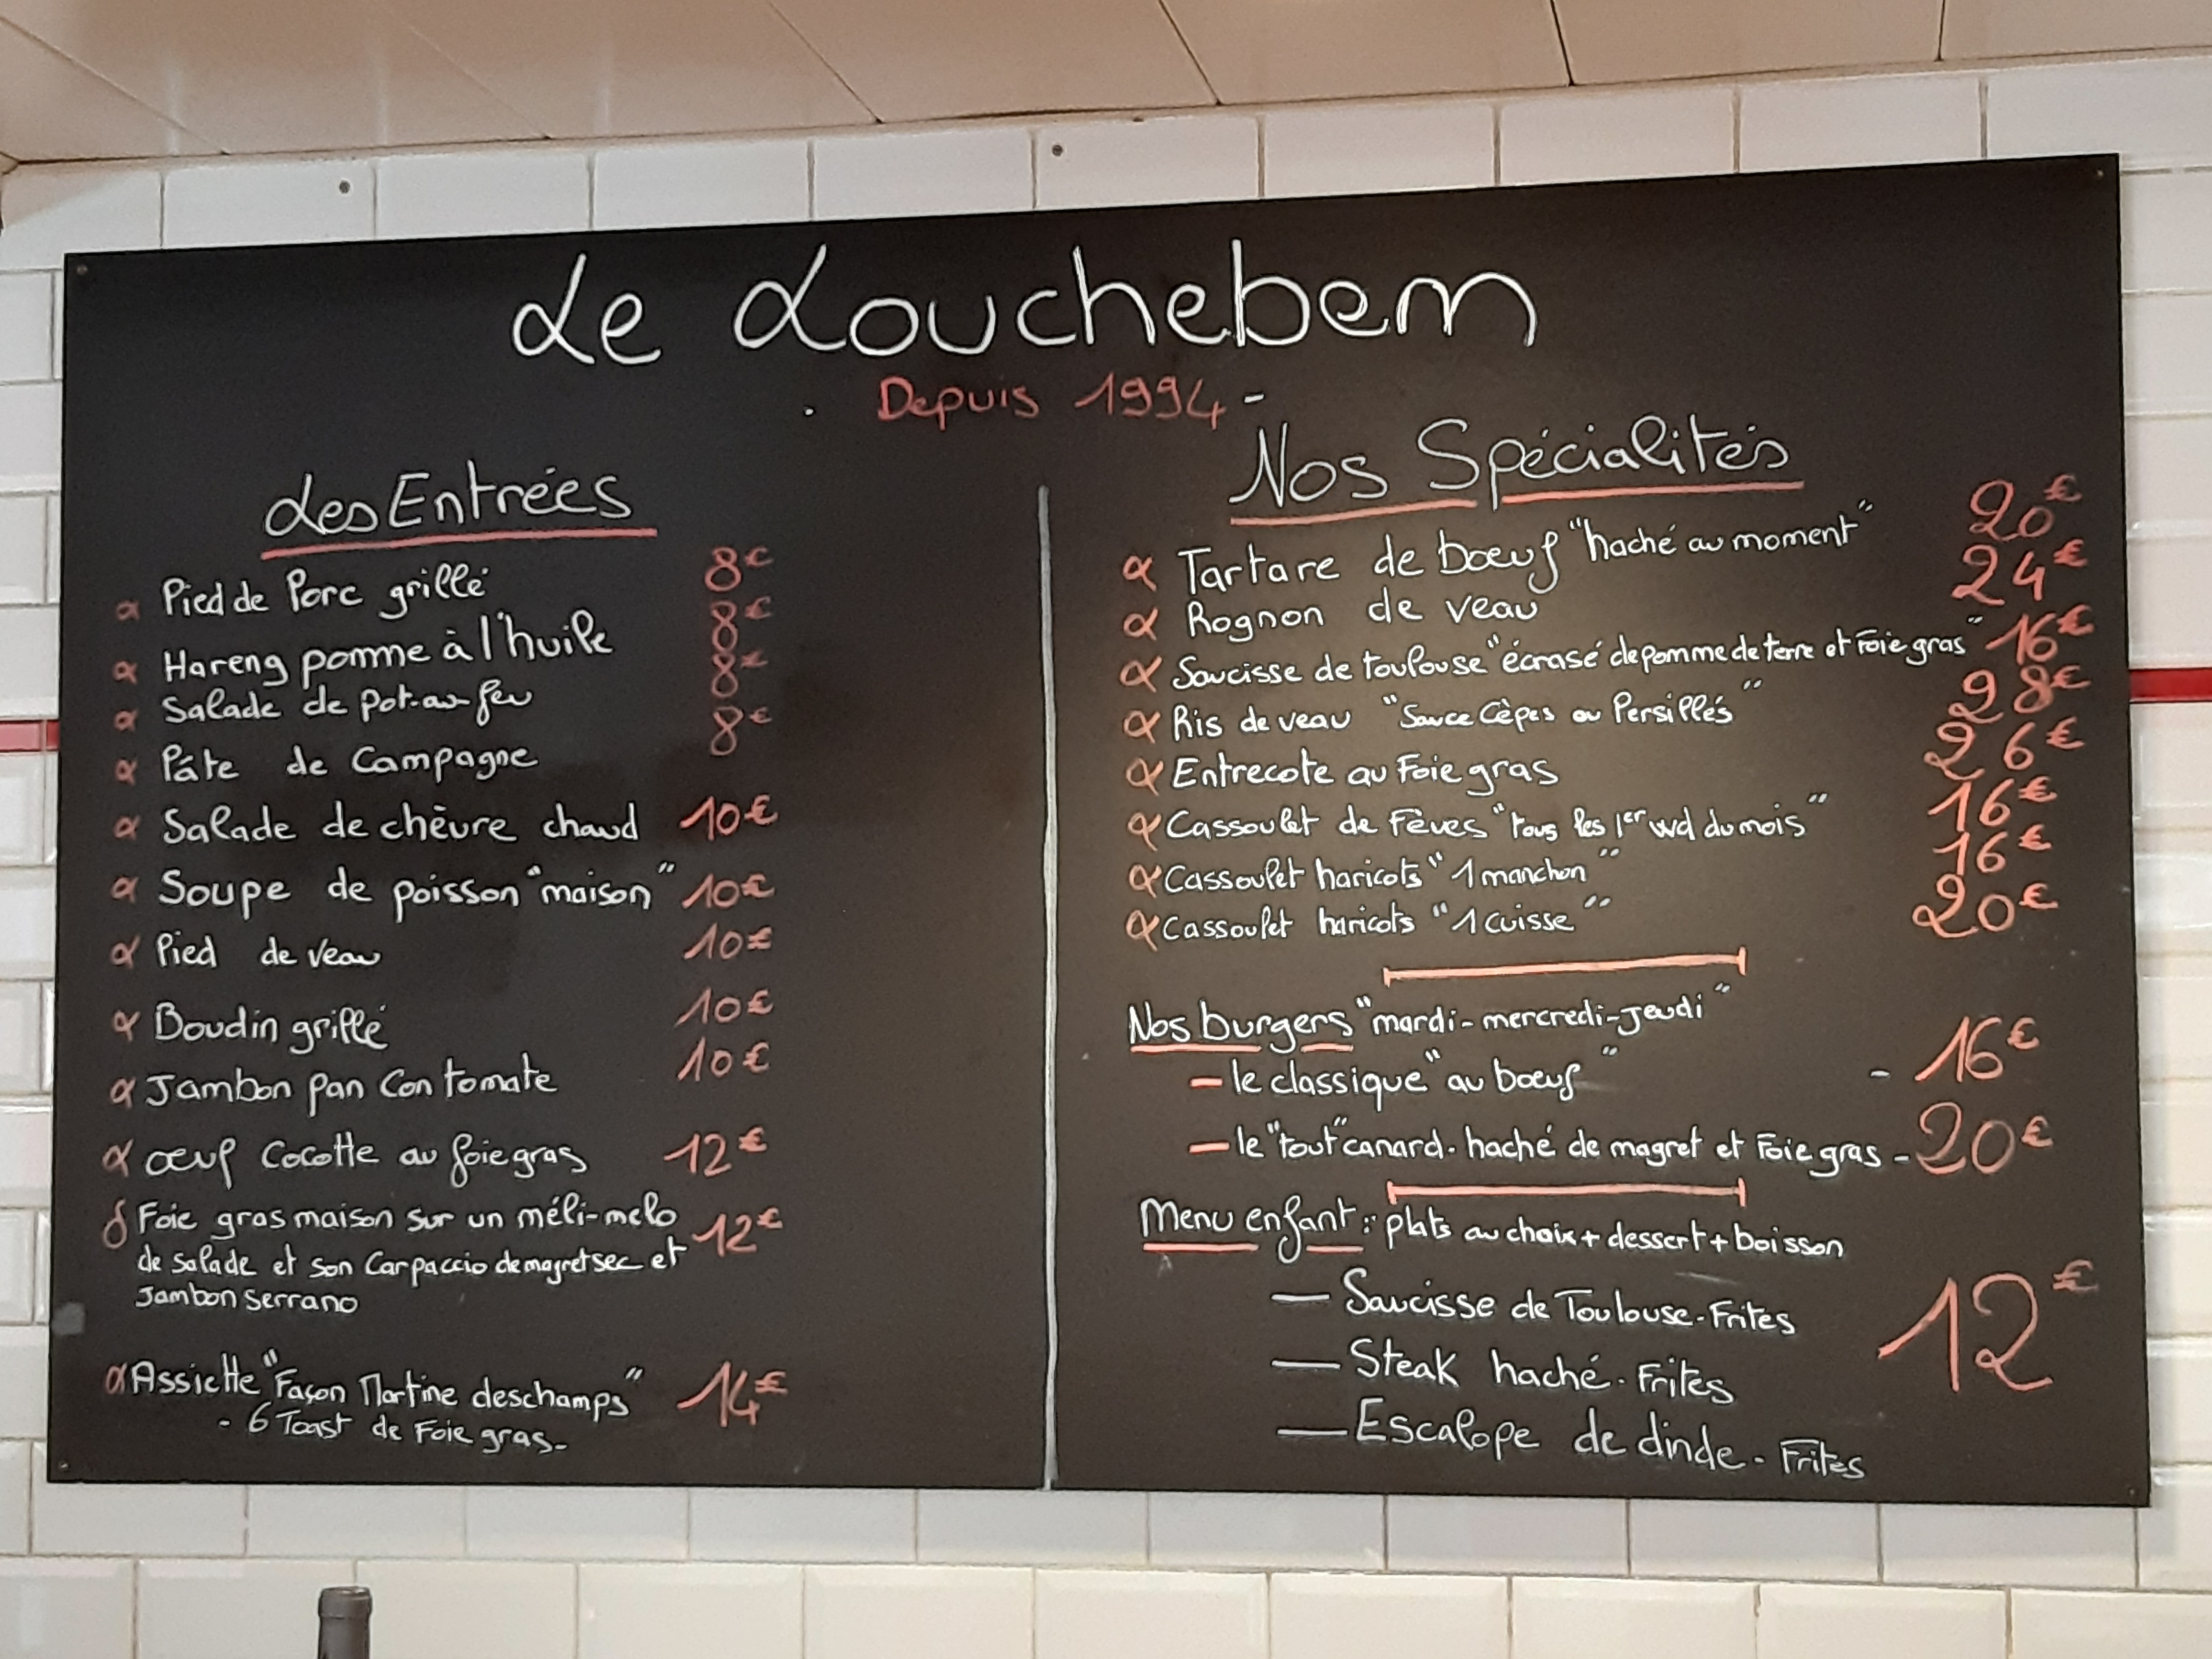 Le Louchebem
. Depuis 1994 -
Les Entrées
Pied de Porc grillé 8€
Hareng pomme à l'huile 8€
Salade de pot-au-feu 8€
Pâte de Campagne 8€
Salade de chèvre chaud 10€
Soupe de poisson "maison" 10€
Pied de veau 10€
Boudin grillé 10€
Jambon pan Con tomate 10€
œuf Cocotte au foie gras 12€
Foie gras maison sur un méli-melo 12€
de salade et son Carpaccio de magret sec et
Jambon Serrano
Assiette "Façon Martine deschamps" 14€
- 6 Toast de Foie gras -
Nos Spécialités
Tartare de bœuf "haché au moment" 20€
Rognon de veau 24€
Saucisse de toulouse "écrasé de pomme de terre et Foie gras" 16€
Ris de veau "Sauce Cèpes ou Persillés" 28€
Entrecote au Foie gras 26€
Cassoulet de Fèves "tous les 1er wd du mois" 16€
Cassoulet haricots "1 manchon" 16€
Cassoulet haricots "1 cuisse" 20€
Nos burgers "mardi-mercredi-Jeudi"
- le classique "au bœuf" - 16€
- le "tout" canard. haché de magret et Foie gras - 20€
Menu enfant : plats au choix + dessert + boisson
— Saucisse de Toulouse - Frites
— Steak haché - Frites 12€
— Escalope de dinde - Frites